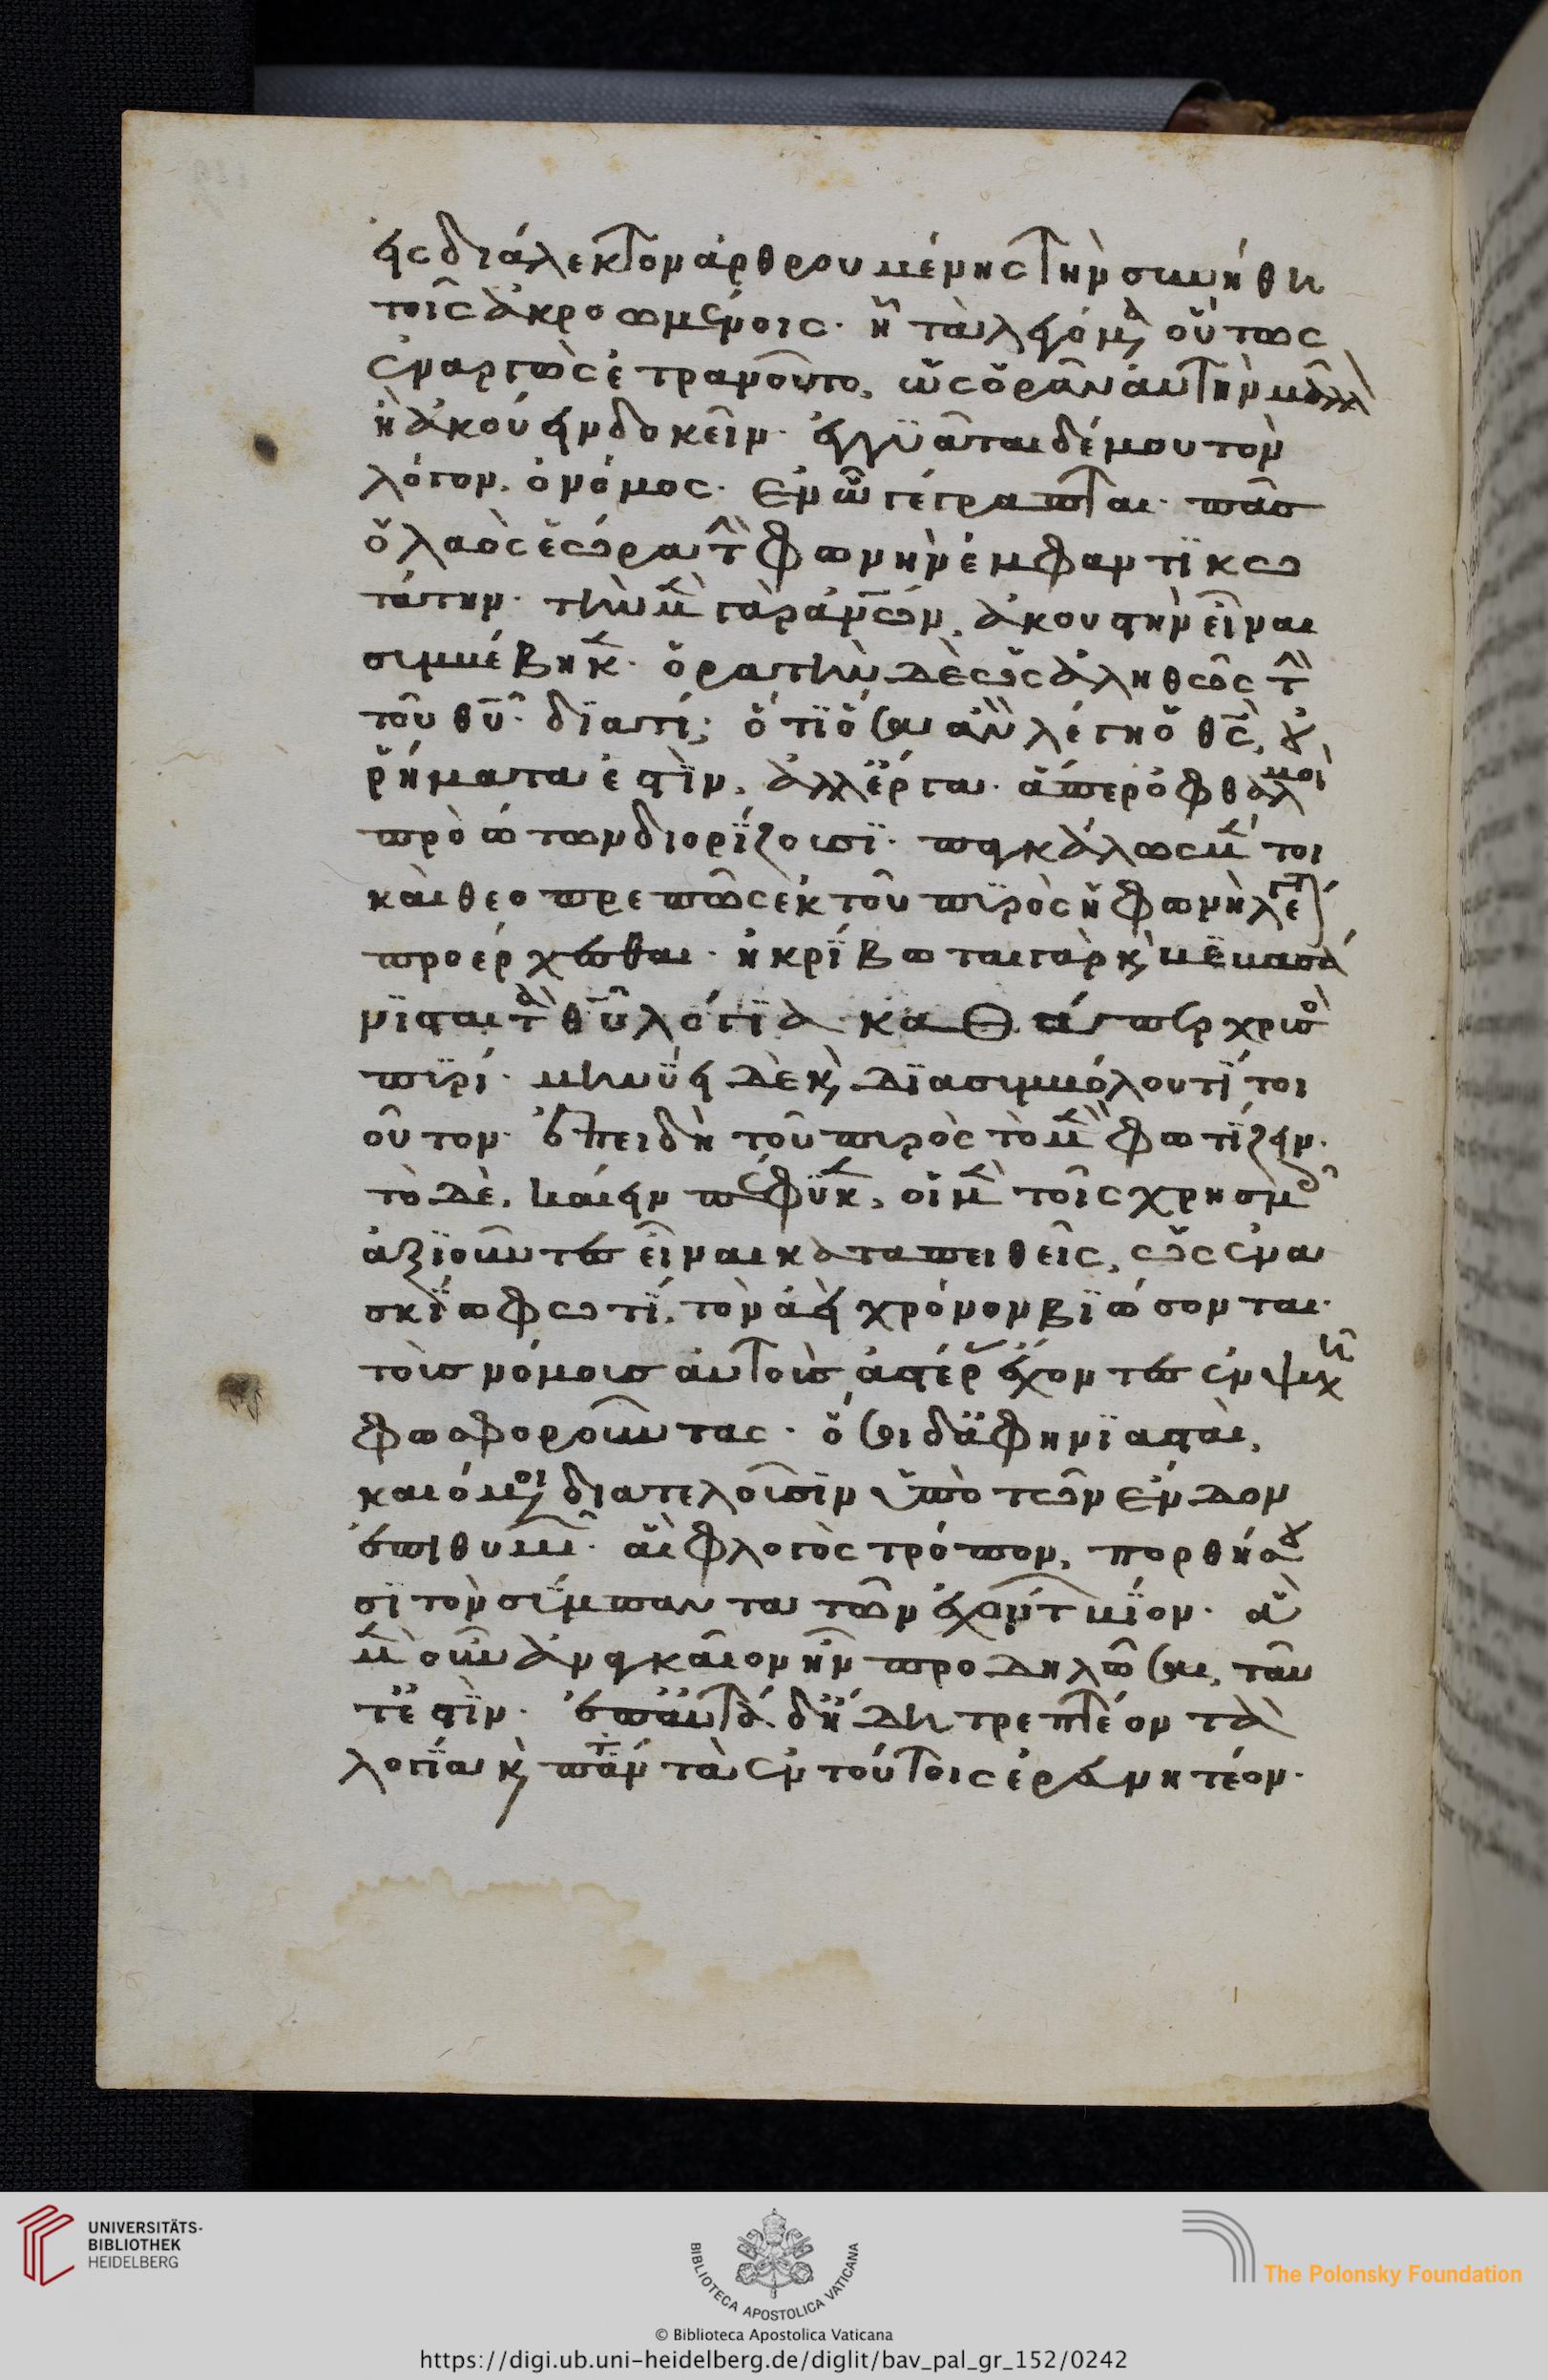 εἰς διάλεκτον ἀρθρουμένης τὴν συνήθη
τοῖς ἀκροωμένοις· ἧ τὰ λεγόμενα οὕτως
ἐναργῶς ἐτρανοῦτο, ὡς ὁρᾶν αὐτὴν μᾶλλ
ἢ ἀκούειν δοκεῖν· ἐγγϋᾶται δέ μου τὸν
λόγον, ὁ νόμος· ἐν ᾧ γέγραπται· πᾶσ
ὁ λαὸς ἑώρα τὴν φωνὴν ἐμφαντϊκω
τάτην· τὴν μὲν γὰρ ἀνων, ἀκουστὴν εἶναι
συμβέβηκεν· ὁρατὴν δὲ ὡς ἀληθῶς τὴν
τοῦ θυ· δϊατί; ὅτϊ ὅσα ἂν λέγη ὁ θς, οὐ
ῥήματα ἐστϊν, ἀλλ' ἔργα· ἅπερ ὀφθαλμοὶ
πρὸ ὤτων διορϊζουσϊ· παγκάλως μέν τοι
καὶ θεοπρεπῶς ἐκ τοῦ πυρὸς ἡ φωνὴ λέγεται
προέρχεσθαι· ἠκρϊβωται γὰρ καὶ βεβασά
νϊσται τὰ θυ λόγϊα καθάπερ χρυσὸ
πυρί· μηνϋει δὲ καὶ δϊα συμβόλου τϊ τοι
οῦτον· ἐπειδὴ τοῦ πυρὸς τὸ μὲν φωτϊζειν·
τὸ δὲ, καίειν πέφϋκεν, οἱ μὲν τοῖς χρησμοῖς
ἀξϊοῦντες εἶναι καταπειθεῖς, ὡς ἐν ἀ
σκϊω φωτϊ, τὸν ἀεὶ χρόνον βϊώσονται·
τοὺσ νόμουσ αὐτοὺσ ἀστέρας ἔχοντες ἐν ψυχῆ
φωσφοροῦντας· ὅσοι δ' ἀφηνϊασταὶ,
καιόμενοι διατελοῦσϊν ὑπὸ τῶν ἔνδον
ἐπιθυμιῶν· αἳ φλογὸς τρόπον, πορθήσου
σϊ τὸν σύμπαντα τῶν ἐχόντων βϊον· ἃ
μὲν οὖν ἀναγκαῖον ἦν προδηλῶσαι, ταῦ
τ' ἐστϊν· ἐπ' αὐτὰ δ' ἤδη τρεπτέον τὰ
λογϊα καὶ πάντα τὰ ἐν τούτοις ἐρευνητέον·
UNIVERSITÄTS-
BIBLIOTHEK
HEIDELBERG
BIBLIOTECA APOSTOLICA VATICANA
The Polonsky Foundation
© Biblioteca Apostolica Vaticana
https://digi.ub.uni-heidelberg.de/diglit/bav_pal_gr_152/0242